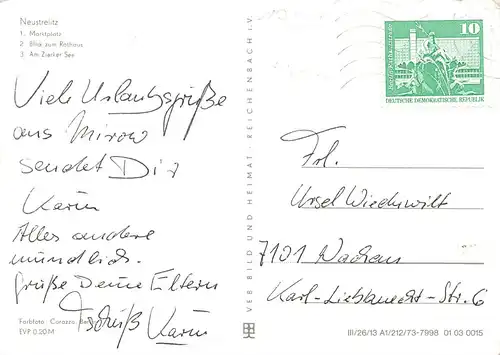 Neustrelitz
1. Marktplatz
2 Blick zum Rathaus
3 Am Zierker See
Viele Urlaubsgrüße
aus Mirow
sendet Dir
Karin
Alles andere
mündlich.
grüße Deine Eltern
Tschüß Karin
Farbfoto: Corazza,
EVP 0.20 M
VEB BILD UND HEIMAT · REICHENBACH i. V.
10
DEUTSCHE DEMOKRATISCHE REPUBLIK
Frl.
Ursel Wieduwilt
7101 Wachau
Karl-Liebknecht-Str. 6
III/26/13 A1/212/73-7998 01 03 0015